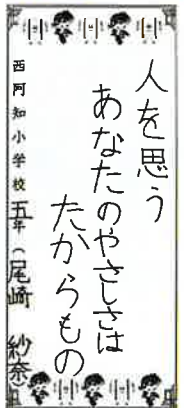 人を思う
あなたのやさしさは
たからもの
西阿知小学校 五年 (尾崎 紗奈